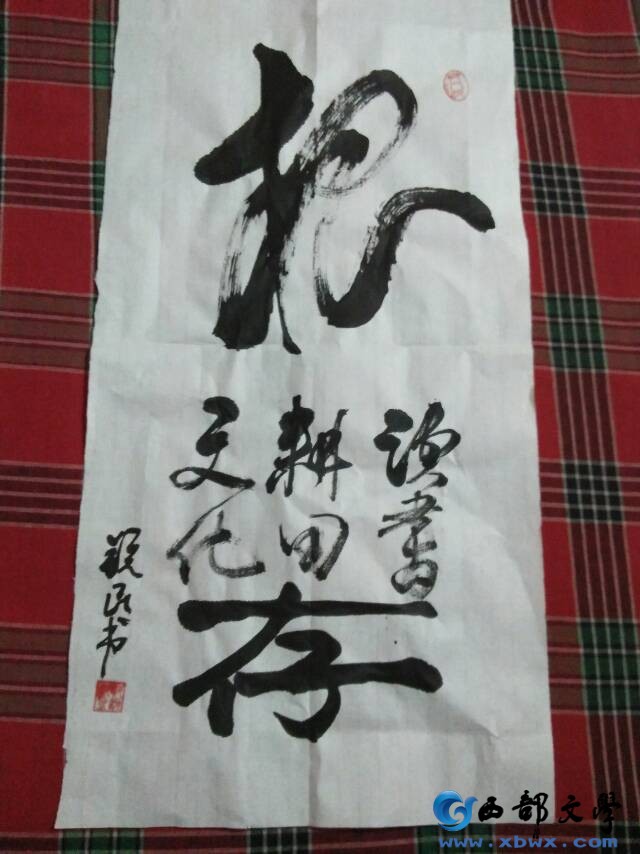 根
读書
耕田
文化
存
西部文學
www.xbwx.com